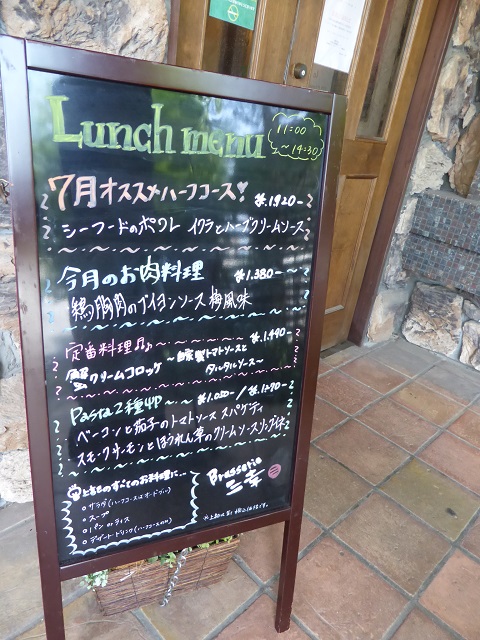 Lunch menu
11:00
~14:30
7月オススメハーフコース♥ ¥1,920-
シーフードのポワレ イクラとハーブクリームソース
今月のお肉料理 ¥1,380-
鶏胸肉のナイヨンソース 梅風味
定番料理 ¥1,490-
蟹クリームコロッケ ~自家製トマトソースと
タルタルソース~
Pasta 2種
ベーコンと茄子のトマトソース スパゲティ
スモークサーモンとほうれん草のクリームソースリングイネ
すべてのお料理に…
○サラダ
○スープ
○パン orライス
○デザート ドリンク
Brasserie
三幸